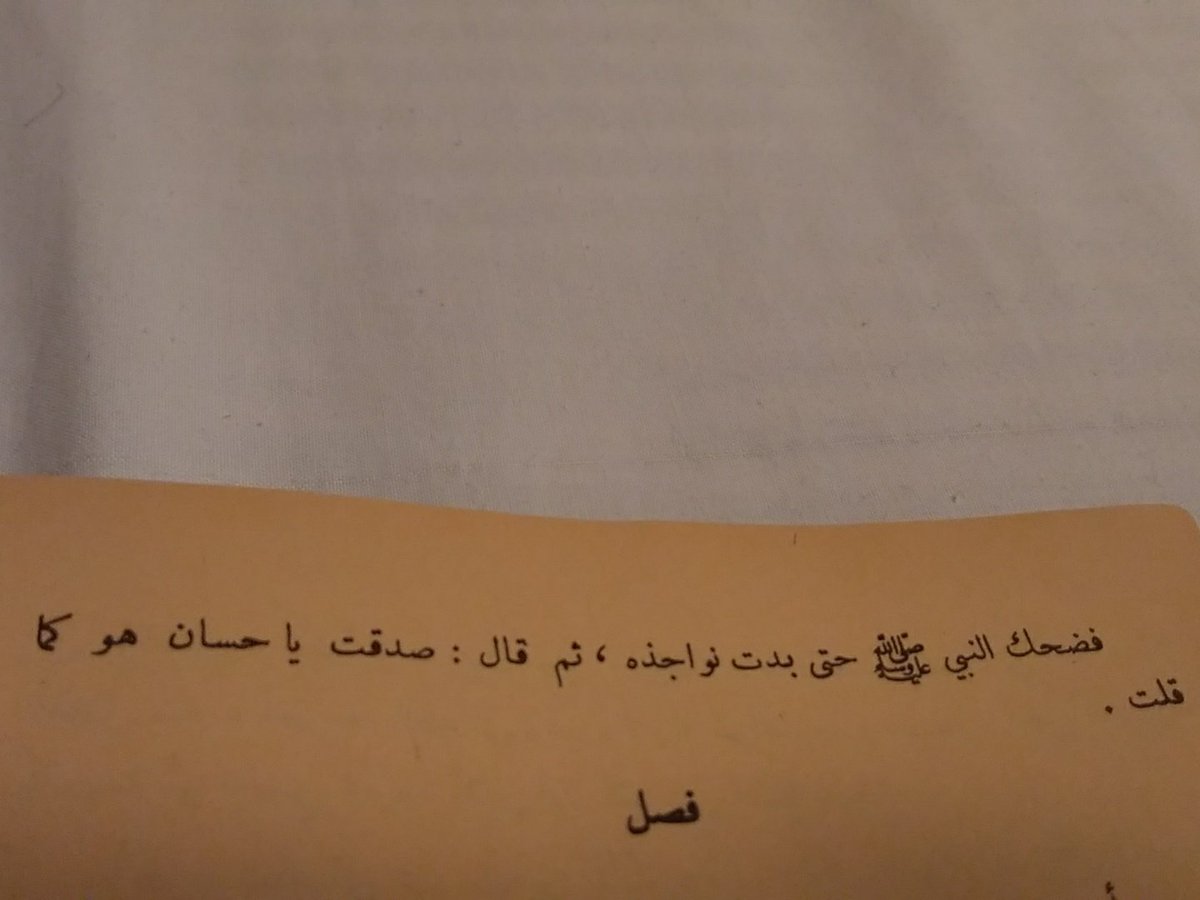 فضحك النبي ﷺ حتى بدت نواجذه ، ثم قال : صدقت يا حسان هو كما
قلت .
فصل